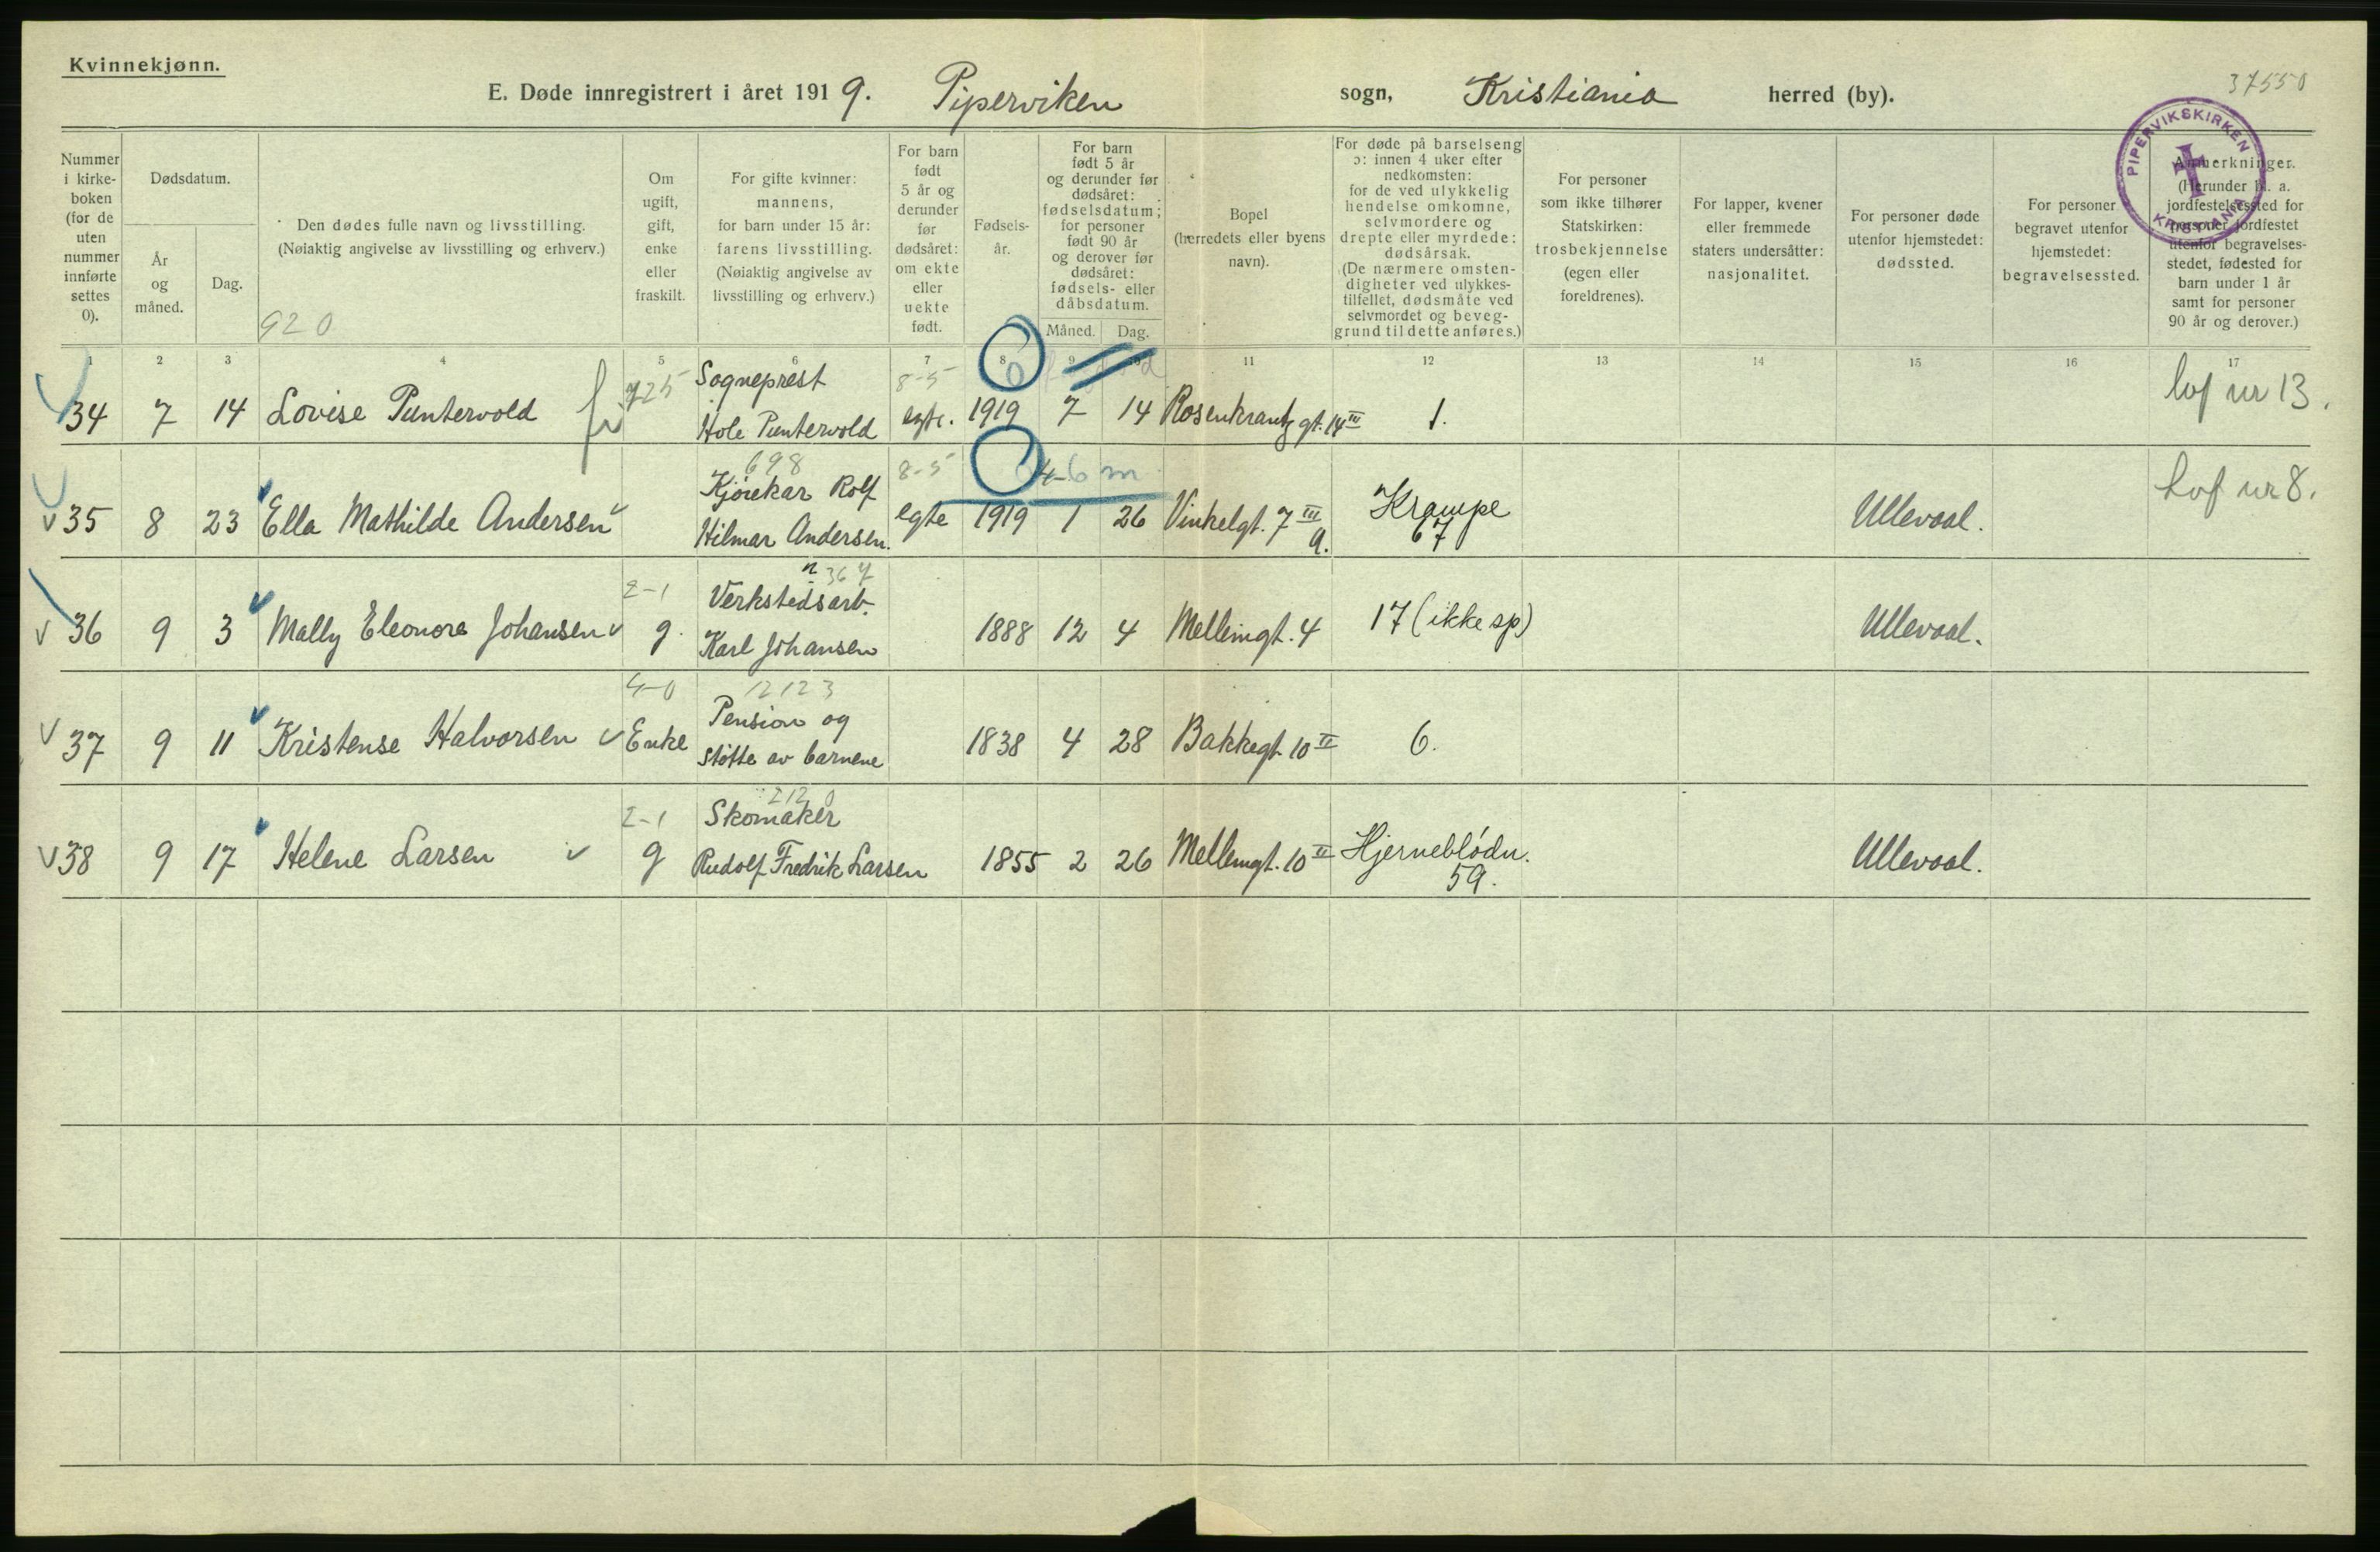 Kvinnekjønn.
E. Døde innregistrert i året 1919. Piperviken sogn, Kristiania herred (by).
37550
PIPERVIKSKIRKEN
KRISTIANIA
Nummer
i kirke-
boken
(for de
uten
nummer
innførte
settes
0).
Dødsdatum.
År
og
måned.
Dag.
Den dødes fulle navn og livsstilling.
(Nøiaktig angivelse av livsstilling og erhverv.)
920
Om
ugift,
gift,
enke
eller
fraskilt.
For gifte kvinner:
mannens,
for barn under 15 år:
farens livsstilling.
(Nøiaktig angivelse av
livsstilling og erhverv.)
For barn
født
5 år og
derunder
før
dødsåret:
om ekte
eller
uekte
født.
Fødsels-
år.
For barn
født 5 år
og derunder før
dødsåret:
fødselsdatum;
for personer
født 90 år
og derover før
dødsåret:
fødsels- eller
dåbsdatum.
Måned. Dag.
Bopel
(herredets eller byens
navn).
For døde på barselseng
ɔ: innen 4 uker efter
nedkomsten:
for de ved ulykkelig
hendelse omkomne,
selvmordere og
drepte eller myrdede:
dødsårsak.
(De nærmere omsten-
digheter ved ulykkes-
tilfellet, dødsmåte ved
selvmordet og beveg-
grund til dette anføres.)
For personer
som ikke tilhører
Statskirken:
trosbekjennelse
(egen eller
foreldrenes).
For lapper, kvener
eller fremmede
staters undersåtter:
nasjonalitet.
For personer døde
utenfor hjemstedet:
dødssted.
For personer
begravet utenfor
hjemstedet:
begravelsessted.
Anmerkninger.
(Herunder bl. a.
jordfestelsessted for
personer jordfestet
utenfor begravelses-
stedet, fødested for
barn under 1 år
samt for personer
90 år og derover.)
1 2 3 4 5 6 7 8 9 10 11 12 13 14 15 16 17
725 Sogneprest 8-5 0 lof nr 13.
34 7 14 Lovise Puntervold Hole Puntervold egte. 1919 7 14 Rosenkrantz gt. 14 III 1.
698 8-5 6 m Lof nr 8.
Kjørekar Rolf
35 8 23 Ella Mathilde Andersen Hilmar Andersen. egte 1919 1 26 Vinkelgt. 7 III 9. Krampe 67 Ullevaal.
2-1 367
Verkstedsarb.
36 9 3 Mally Eleonora Johansen g. Karl Johansen 1888 12 4 Mellemgt. 4 17 (ikke sp) Ullevaal.
4-0 12123
Pension og
37 9 11 Kristense Halvorsen Enke støtte av barnene 1838 4 28 Bakkegt. 10 II 6.
2-1 2120
Skomaker
38 9 17 Helene Larsen g Rudolf Fredrik Larsen 1855 2 26 Mellemgt. 10 II Hjerneblødn. 59. Ullevaal.